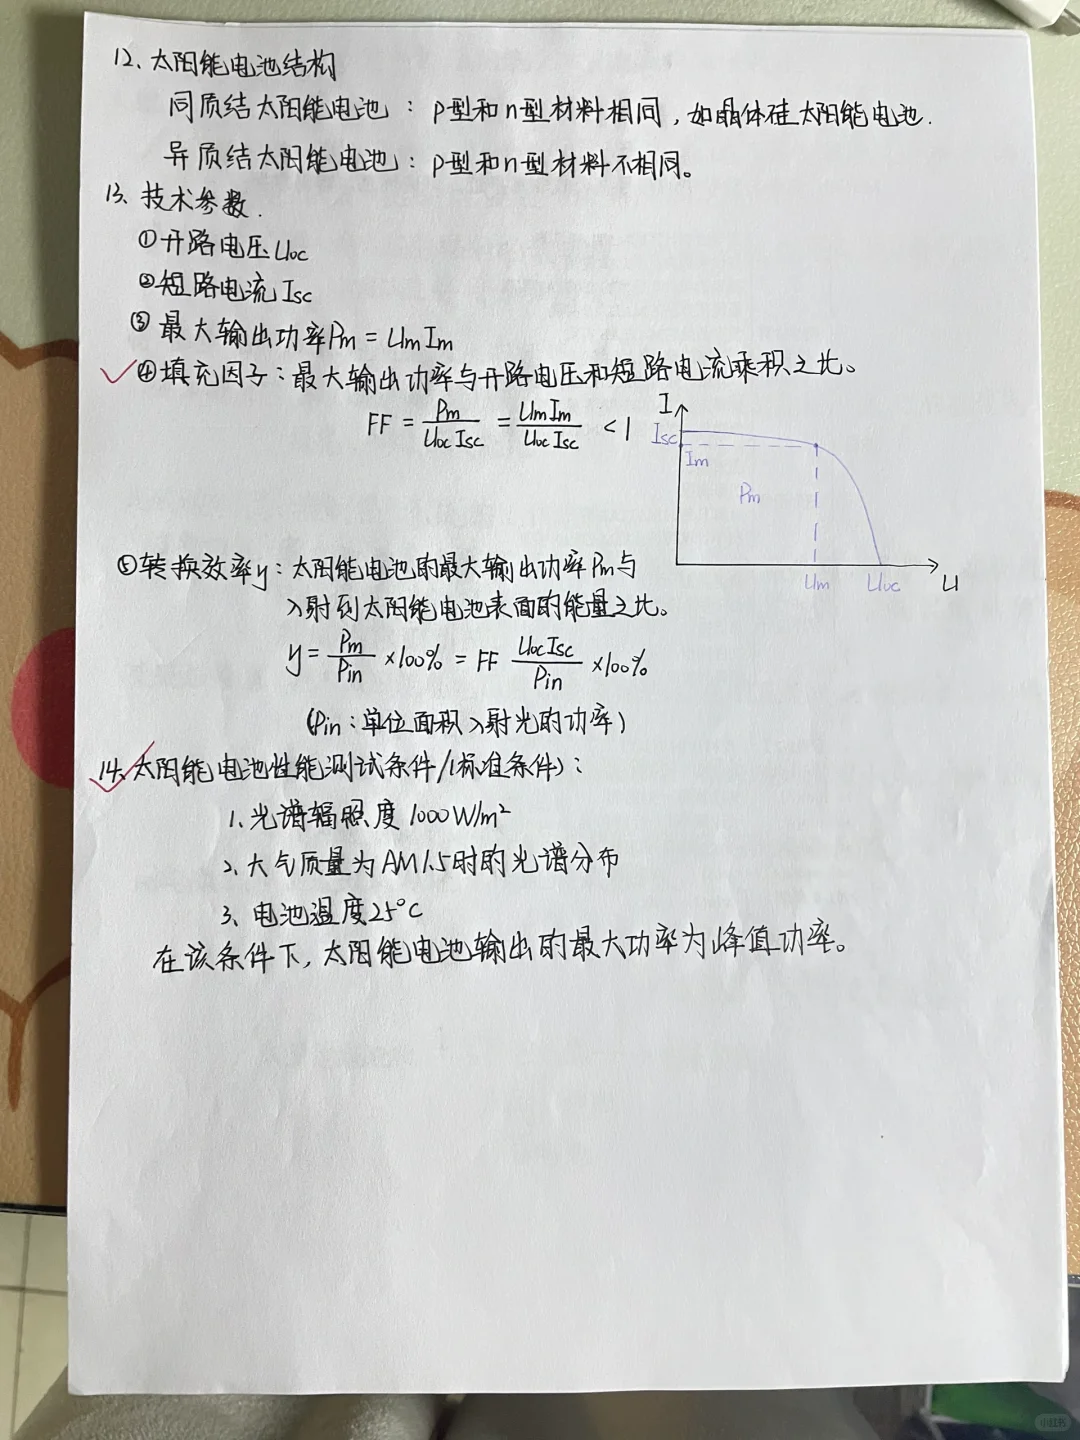 12、太阳能电池结构
同质结太阳能电池：p型和n型材料相同，如晶体硅太阳能电池.
异质结太阳能电池：p型和n型材料不相同。
13、技术参数.
①开路电压Uoc
②短路电流Isc
③最大输出功率Pm=UmIm
④填充因子：最大输出功率与开路电压和短路电流乘积之比。
FF = Pm/UocIsc = UmIm/UocIsc < 1
I
Isc
Im
Pm
Um
Uoc
U
⑤转换效率y：太阳能电池的最大输出功率Pm与
入射到太阳能电池表面的能量之比。
y = Pm/Pin ×100% = FF UocIsc/Pin ×100%
(Pin：单位面积入射光的功率)
14、太阳能电池性能测试条件/(标准条件)：
1、光谱辐照度1000W/m²
2、大气质量为AM1.5时的光谱分布
3、电池温度25°C
在该条件下，太阳能电池输出的最大功率为峰值功率。
小红书